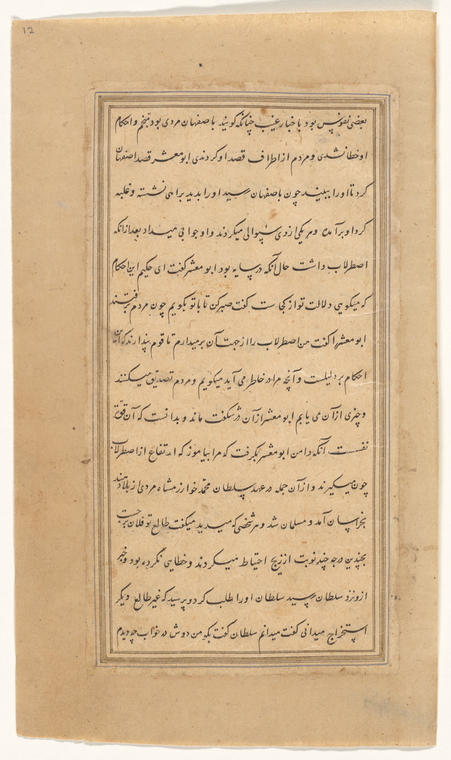 12
بعضی نفوس بود باخبار غیب چنانکه گویند باصفهان مردی بود منجم و احکام
او خطا نشدی و مردم از اطراف قصد او کردندی ابو معشر قصد اصفهان
کرد تا او را ببیند چون باصفهان رسید او را بدید براهی نشسته و غلبه
کرد او برآمده و هر یکی از وی سوالی میکردند و او جوابی میداد بعد از آنکه
اصطرلاب داشت حال آنکه در سایه بود ابو معشر گفت ای حکیم این احکام
که میگویی دلالت تو از کجاست گفت صبر کن تا با تو بگویم چون مردم برفتند
ابو معشر را گفت من اصطرلاب را از جهت آن برمیدارم تا قوم پندارند که این
احکام بر دلیلست و آنچه مرا در خاطر می آید میگویم و مردم تصدیق میکنند
و چیزی از آن می یابم ابو معشر از آن در شگفت ماند و بدانست که آن قوّت
نفسست آنگه دامن ابو معشر بگرفت که مرا بیاموز که ارتفاع از اصطرلاب
چون میگیرند و از آن جمله در عهد سلطان محمد خوارزمشاه مردی از بلاد هند
بخراسان آمد و مسلمان شد و هر شخصی که میدید میگفت طالع تو فلان برجست
بچندین درجه چند نوبت از زیج احتیاط میکردند و خطایی نکرده بود و خبر
او نزد سلطان رسید سلطان او را طلب کرد و پرسید که غیر طالع دیگر
استخراج میدانی گفت میدانم سلطان گفت بگو من دوش در خواب چه دیدم